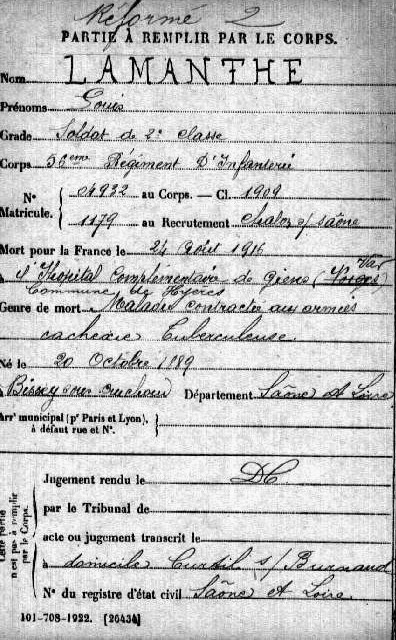 Réformé 2
PARTIE À REMPLIR PAR LE CORPS.
Nom LAMANTHE
Prénoms Louis
Grade Soldat de 2e classe
Corps 56ème Régiment D'Infanterie
N° Matricule. { 04932 au Corps. — Cl. 1909
1179 au Recrutement Chalon s/ Saône
Mort pour la France le 24 Août 1916
à l'Hopital Complementaire de Giens (Vosges) Var
Commune de Hyères
Genre de mort Maladie contractée aux armées
cachexie Tuberculeuse
Né le 20 Octobre 1889
à Bissey sous Cruchaud Département Saône et Loire
Arr' municipal (p' Paris et Lyon), à défaut rue et N°. }
Cette partie n'est pas à remplir par le Corps.
Jugement rendu le DC
par le Tribunal de
acte ou jugement transcrit le
à domicile Curtil s/ Burnand
N° du registre d'état civil Saône et Loire
101-708-1922. [26434]